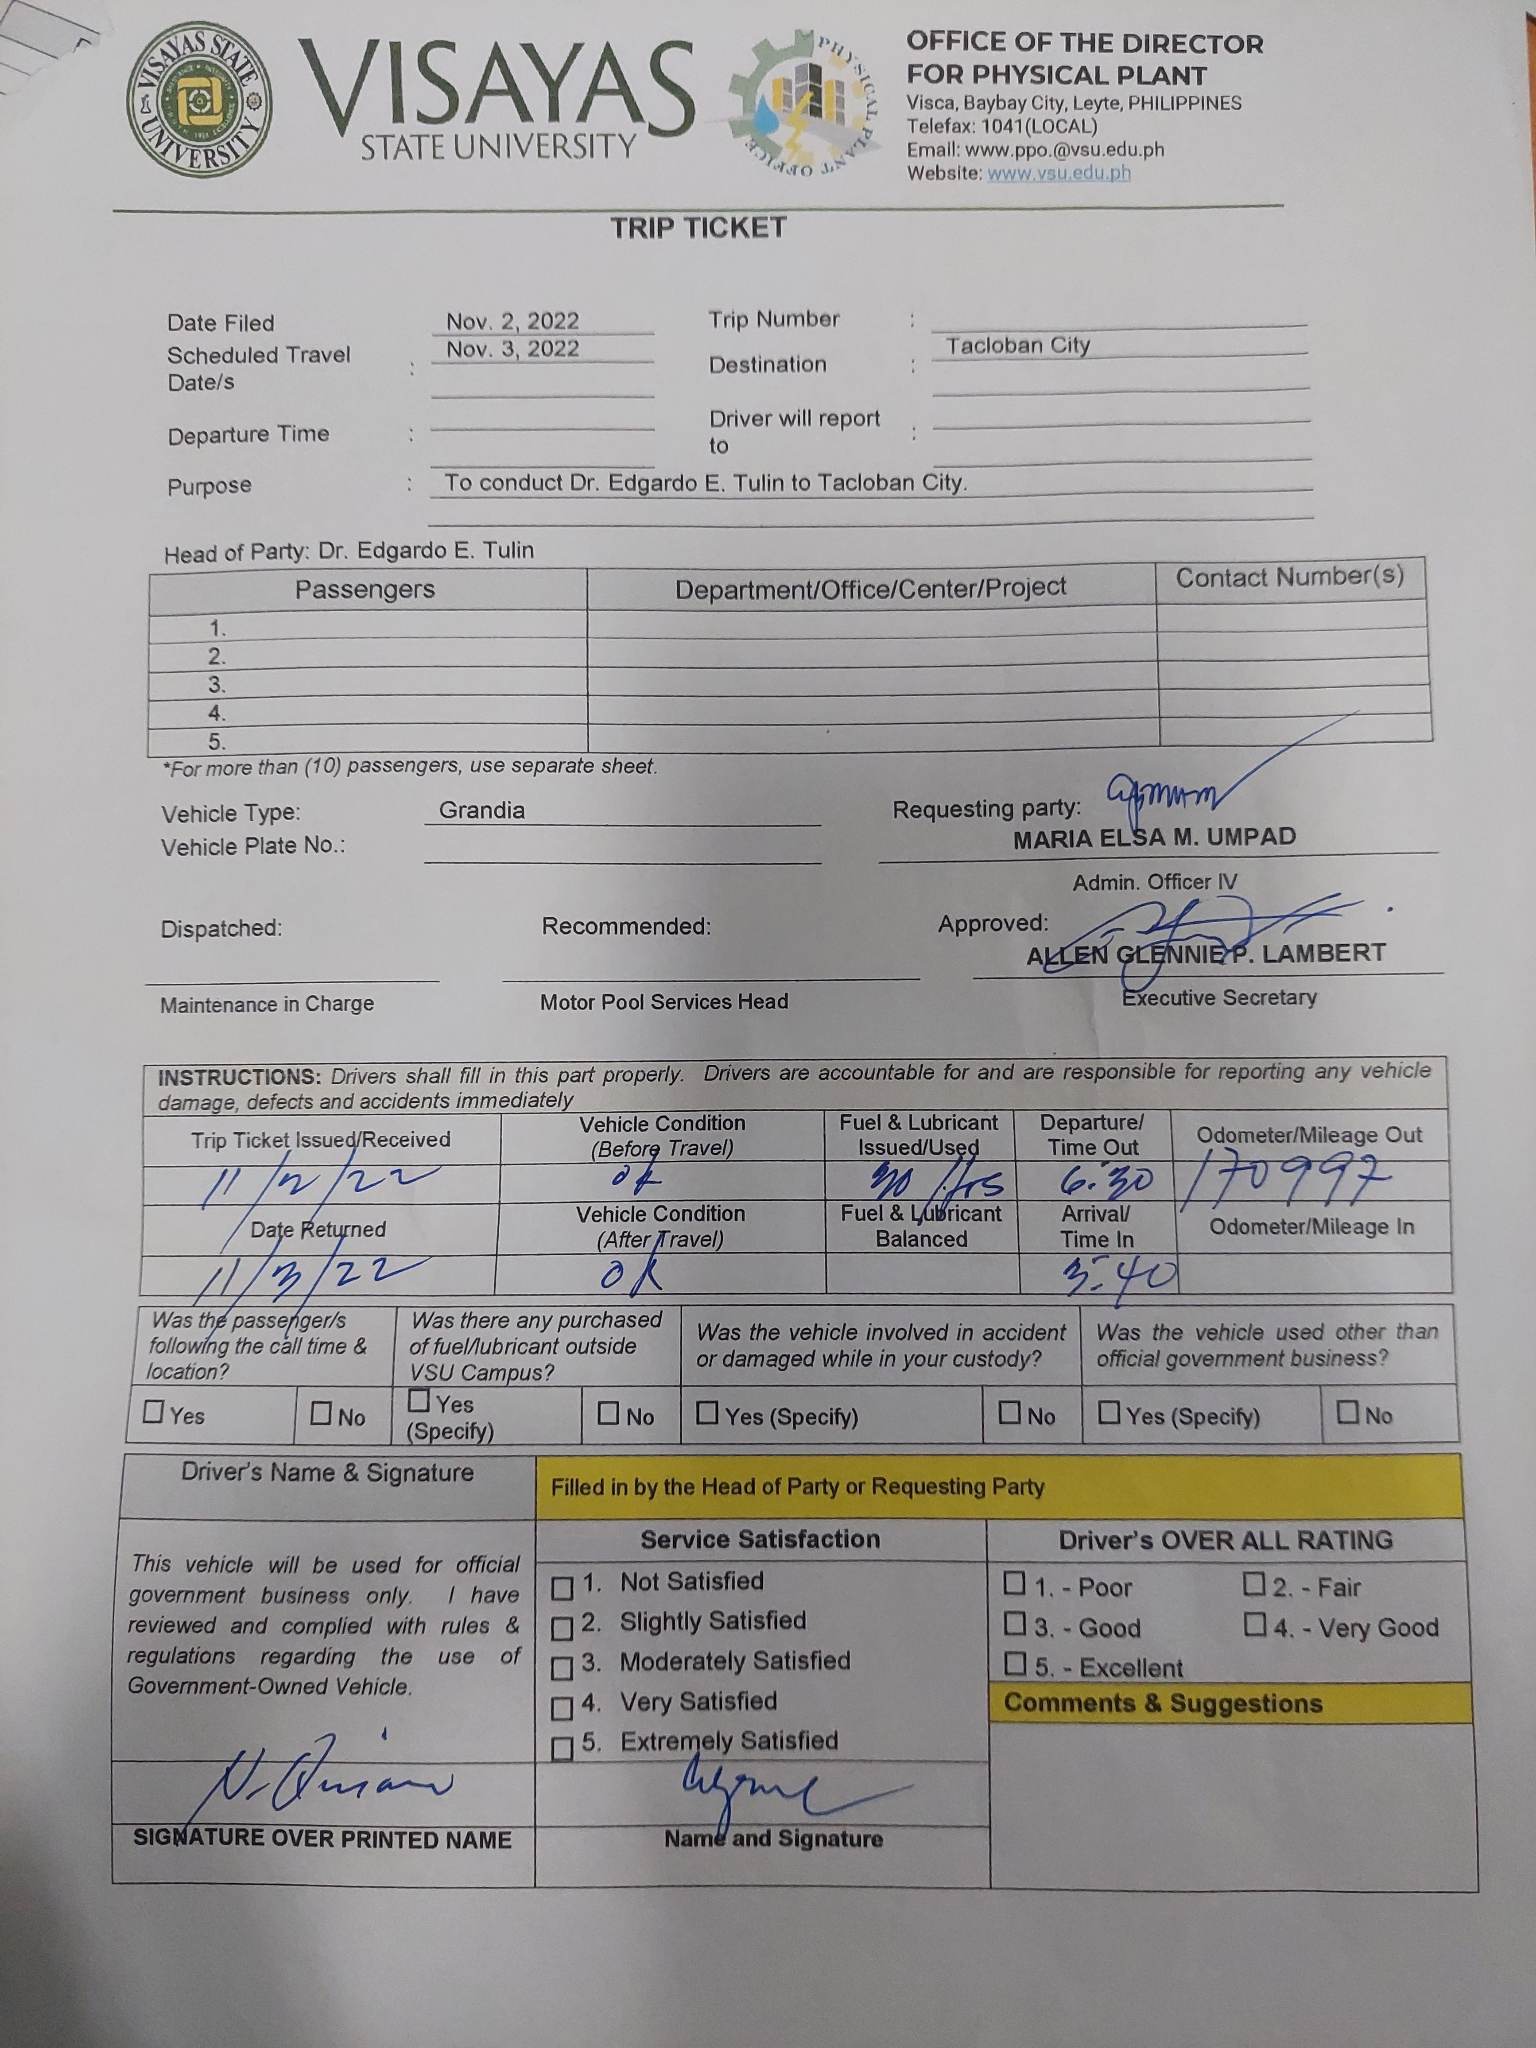 VISAYAS STATE
UNIVERSITY
VISAYAS
STATE UNIVERSITY
PHYSICAL PLANT OFFICE
OFFICE OF THE DIRECTOR
FOR PHYSICAL PLANT
Visca, Baybay City, Leyte, PHILIPPINES
Telefax: 1041(LOCAL)
Email: www.ppo.@vsu.edu.ph
Website: www.vsu.edu.ph
TRIP TICKET
Date Filed Nov. 2, 2022 Trip Number :
Scheduled Travel Date/s : Nov. 3, 2022 Destination : Tacloban City
Departure Time : Driver will report to :
Purpose : To conduct Dr. Edgardo E. Tulin to Tacloban City.
Head of Party: Dr. Edgardo E. Tulin
Passengers Department/Office/Center/Project Contact Number(s)
1.
2.
3.
4.
5.
*For more than (10) passengers, use separate sheet.
Vehicle Type: Grandia Requesting party:
Vehicle Plate No.: MARIA ELSA M. UMPAD
Admin. Officer IV
Dispatched: Recommended: Approved:
ALLEN GLENNIE P. LAMBERT
Maintenance in Charge Motor Pool Services Head Executive Secretary
INSTRUCTIONS: Drivers shall fill in this part properly. Drivers are accountable for and are responsible for reporting any vehicle
damage, defects and accidents immediately
Trip Ticket Issued/Received Vehicle Condition (Before Travel) Fuel & Lubricant Issued/Used Departure/ Time Out Odometer/Mileage Out
11/2/22 OK 30 ltrs 6:30 170997
Date Returned Vehicle Condition (After Travel) Fuel & Lubricant Balanced Arrival/ Time In Odometer/Mileage In
11/3/22 OK 3:40
Was the passenger/s following the call time & location? Was there any purchased of fuel/lubricant outside VSU Campus? Was the vehicle involved in accident or damaged while in your custody? Was the vehicle used other than official government business?
Yes No Yes (Specify) No Yes (Specify) No Yes (Specify) No
Driver's Name & Signature Filled in by the Head of Party or Requesting Party
Service Satisfaction Driver's OVER ALL RATING
This vehicle will be used for official
government business only. I have
reviewed and complied with rules &
regulations regarding the use of
Government-Owned Vehicle.
1. Not Satisfied
2. Slightly Satisfied
3. Moderately Satisfied
4. Very Satisfied
5. Extremely Satisfied
1. - Poor 2. - Fair
3. - Good 4. - Very Good
5. - Excellent
Comments & Suggestions
SIGNATURE OVER PRINTED NAME Name and Signature